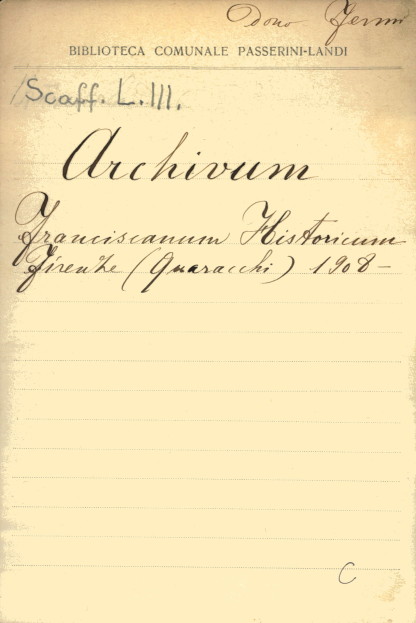 Dono Fermi
BIBLIOTECA COMUNALE PASSERINI-LANDI
Scaff. L. III.
Archivum
Franciscanum Historicum
Firenze (Quaracchi) 1908-
C